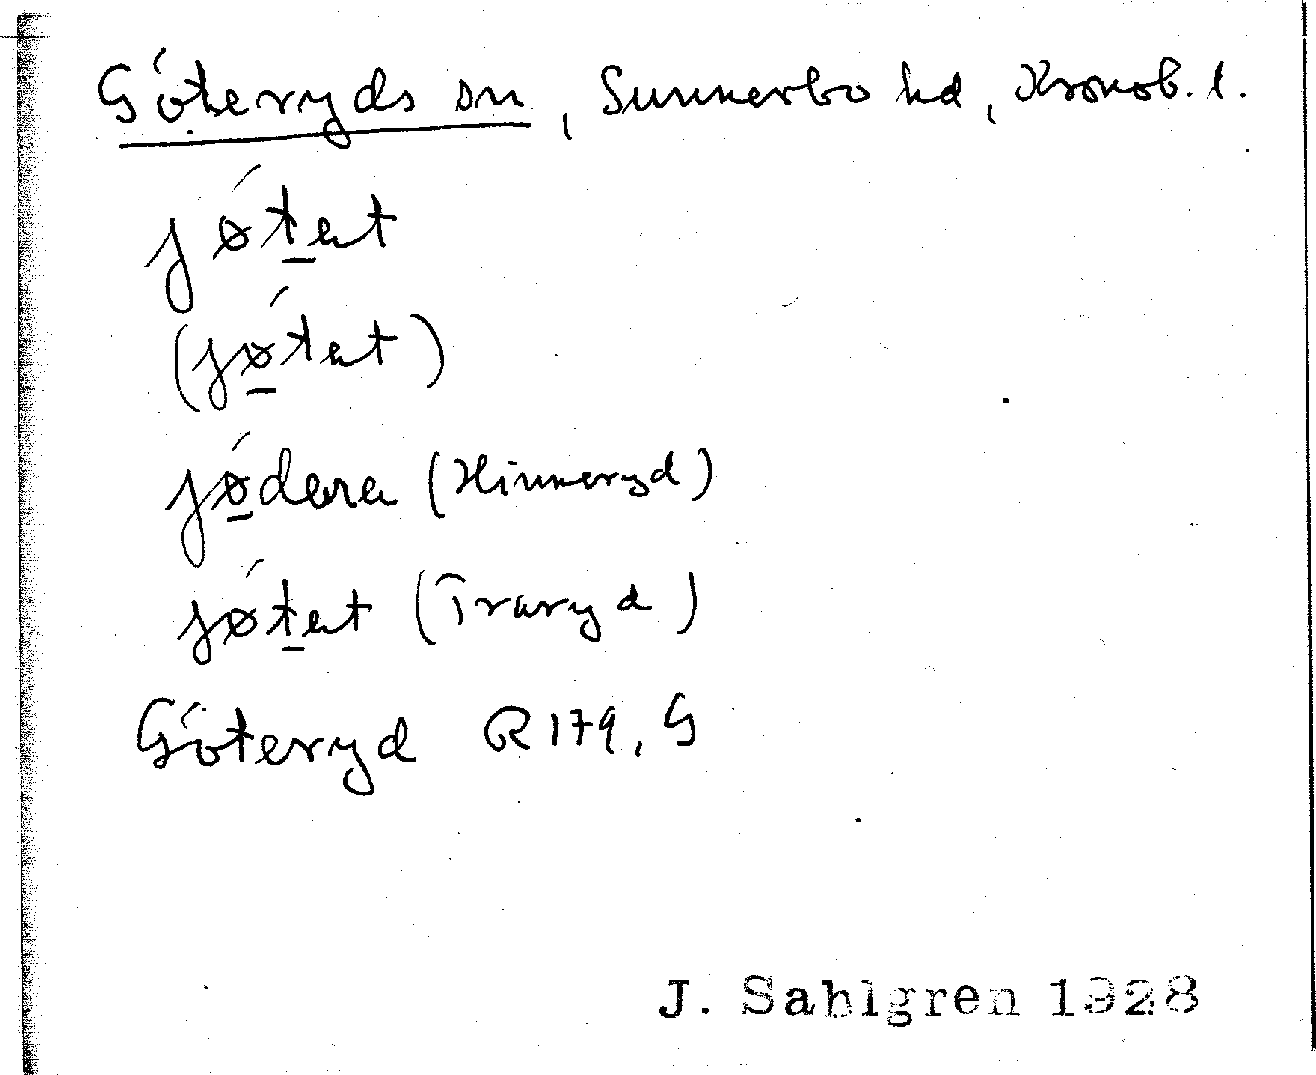 Göteryds sn, Sunnerbo hd, Kronob. l.
jǿtat
(jǿtat)
jǿdara (Hinneryd)
jǿtat (Traryd)
Göteryd R 179, G
J. Sahlgren 1928